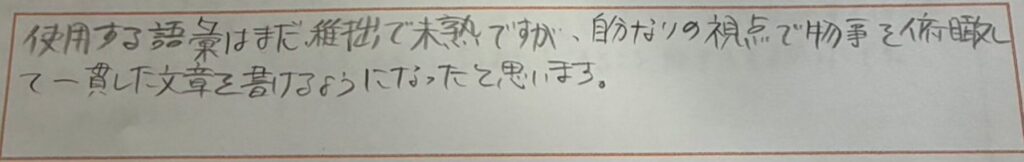 使用する語彙はまだ稚拙で未熟ですが、自分なりの視点で物事を俯瞰し
て一貫した文章を書けるようになったと思います。